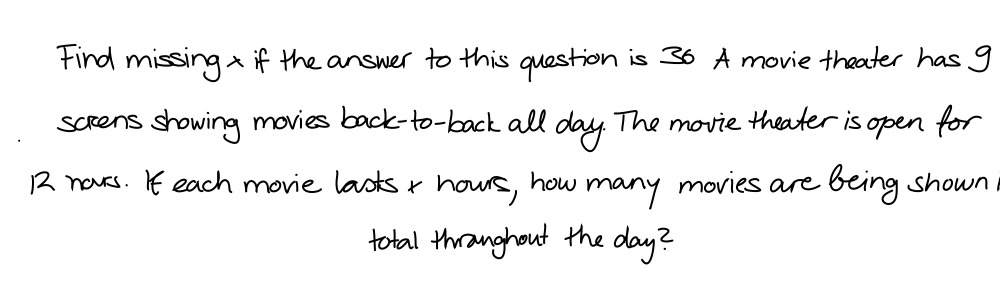 Find missing x if the answer to this question is 36 A movie theater has 9
screens showing movies back-to-back all day. The movie theater is open for
12 hours. If each movie lasts x hours, how many movies are being shown i
total throughout the day?